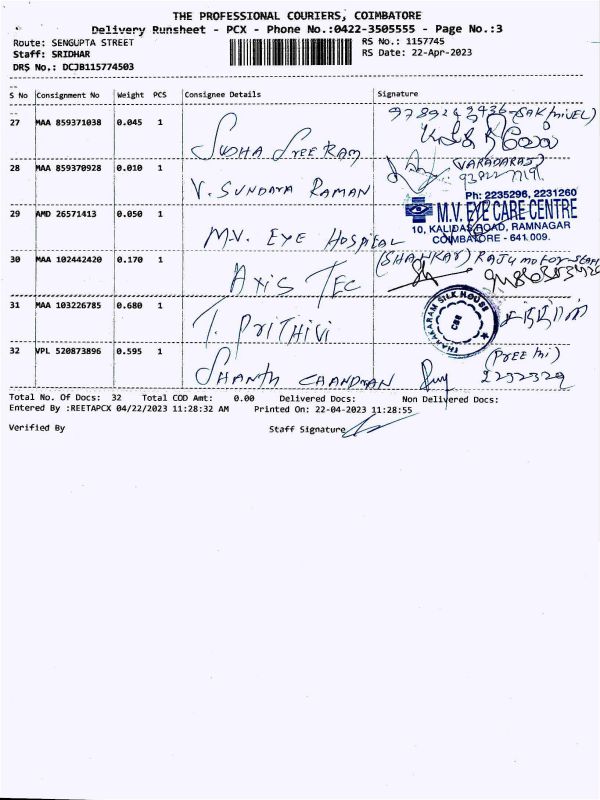 THE PROFESSIONAL COURIERS, COIMBATORE
Delivery Runsheet - PCX - Phone No.:0422-3505555 - Page No.:3
Route: SENGUPTA STREET RS No.: 1157745
Staff: SRIDHAR RS Date: 22-Apr-2023
DRS No.: DCJB115774503
S No Consignment No Weight PCS Consignee Details Signature
27 MAA 859371038 0.045 1 SUDHA SREE RAM
28 MAA 859370928 0.010 1 V. SUNDARA RAMAN (VARADARAJ)
Ph: 2235296, 2231260
29 AMD 26571413 0.050 1 M.V. EYE HOSPITAL M.V. EYE CARE CENTRE
10, KALIDAS ROAD, RAMNAGAR
COIMBATORE - 641 009.
30 MAA 102442420 0.170 1 AXIS TEC (SHANKAR)
31 MAA 103226785 0.680 1 T. PRITHIVI THAHAKARAM SILK HOUSE CBE
32 VPL 520873896 0.595 1 SHANTH CHANDRAN 2232329
Total No. Of Docs: 32 Total COD Amt: 0.00 Delivered Docs: Non Delivered Docs:
Entered By :REETAPCX 04/22/2023 11:28:32 AM Printed On: 22-04-2023 11:28:55
Verified By Staff Signature